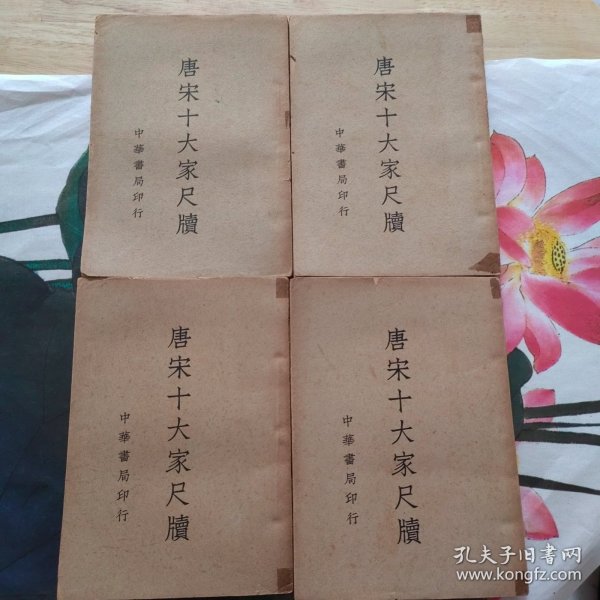 唐宋十大家尺牘
中華書局印行
唐宋十大家尺牘
中華書局印行
唐宋十大家尺牘
中華書局印行
唐宋十大家尺牘
中華書局印行
孔夫子旧书网
www.kongfz.com